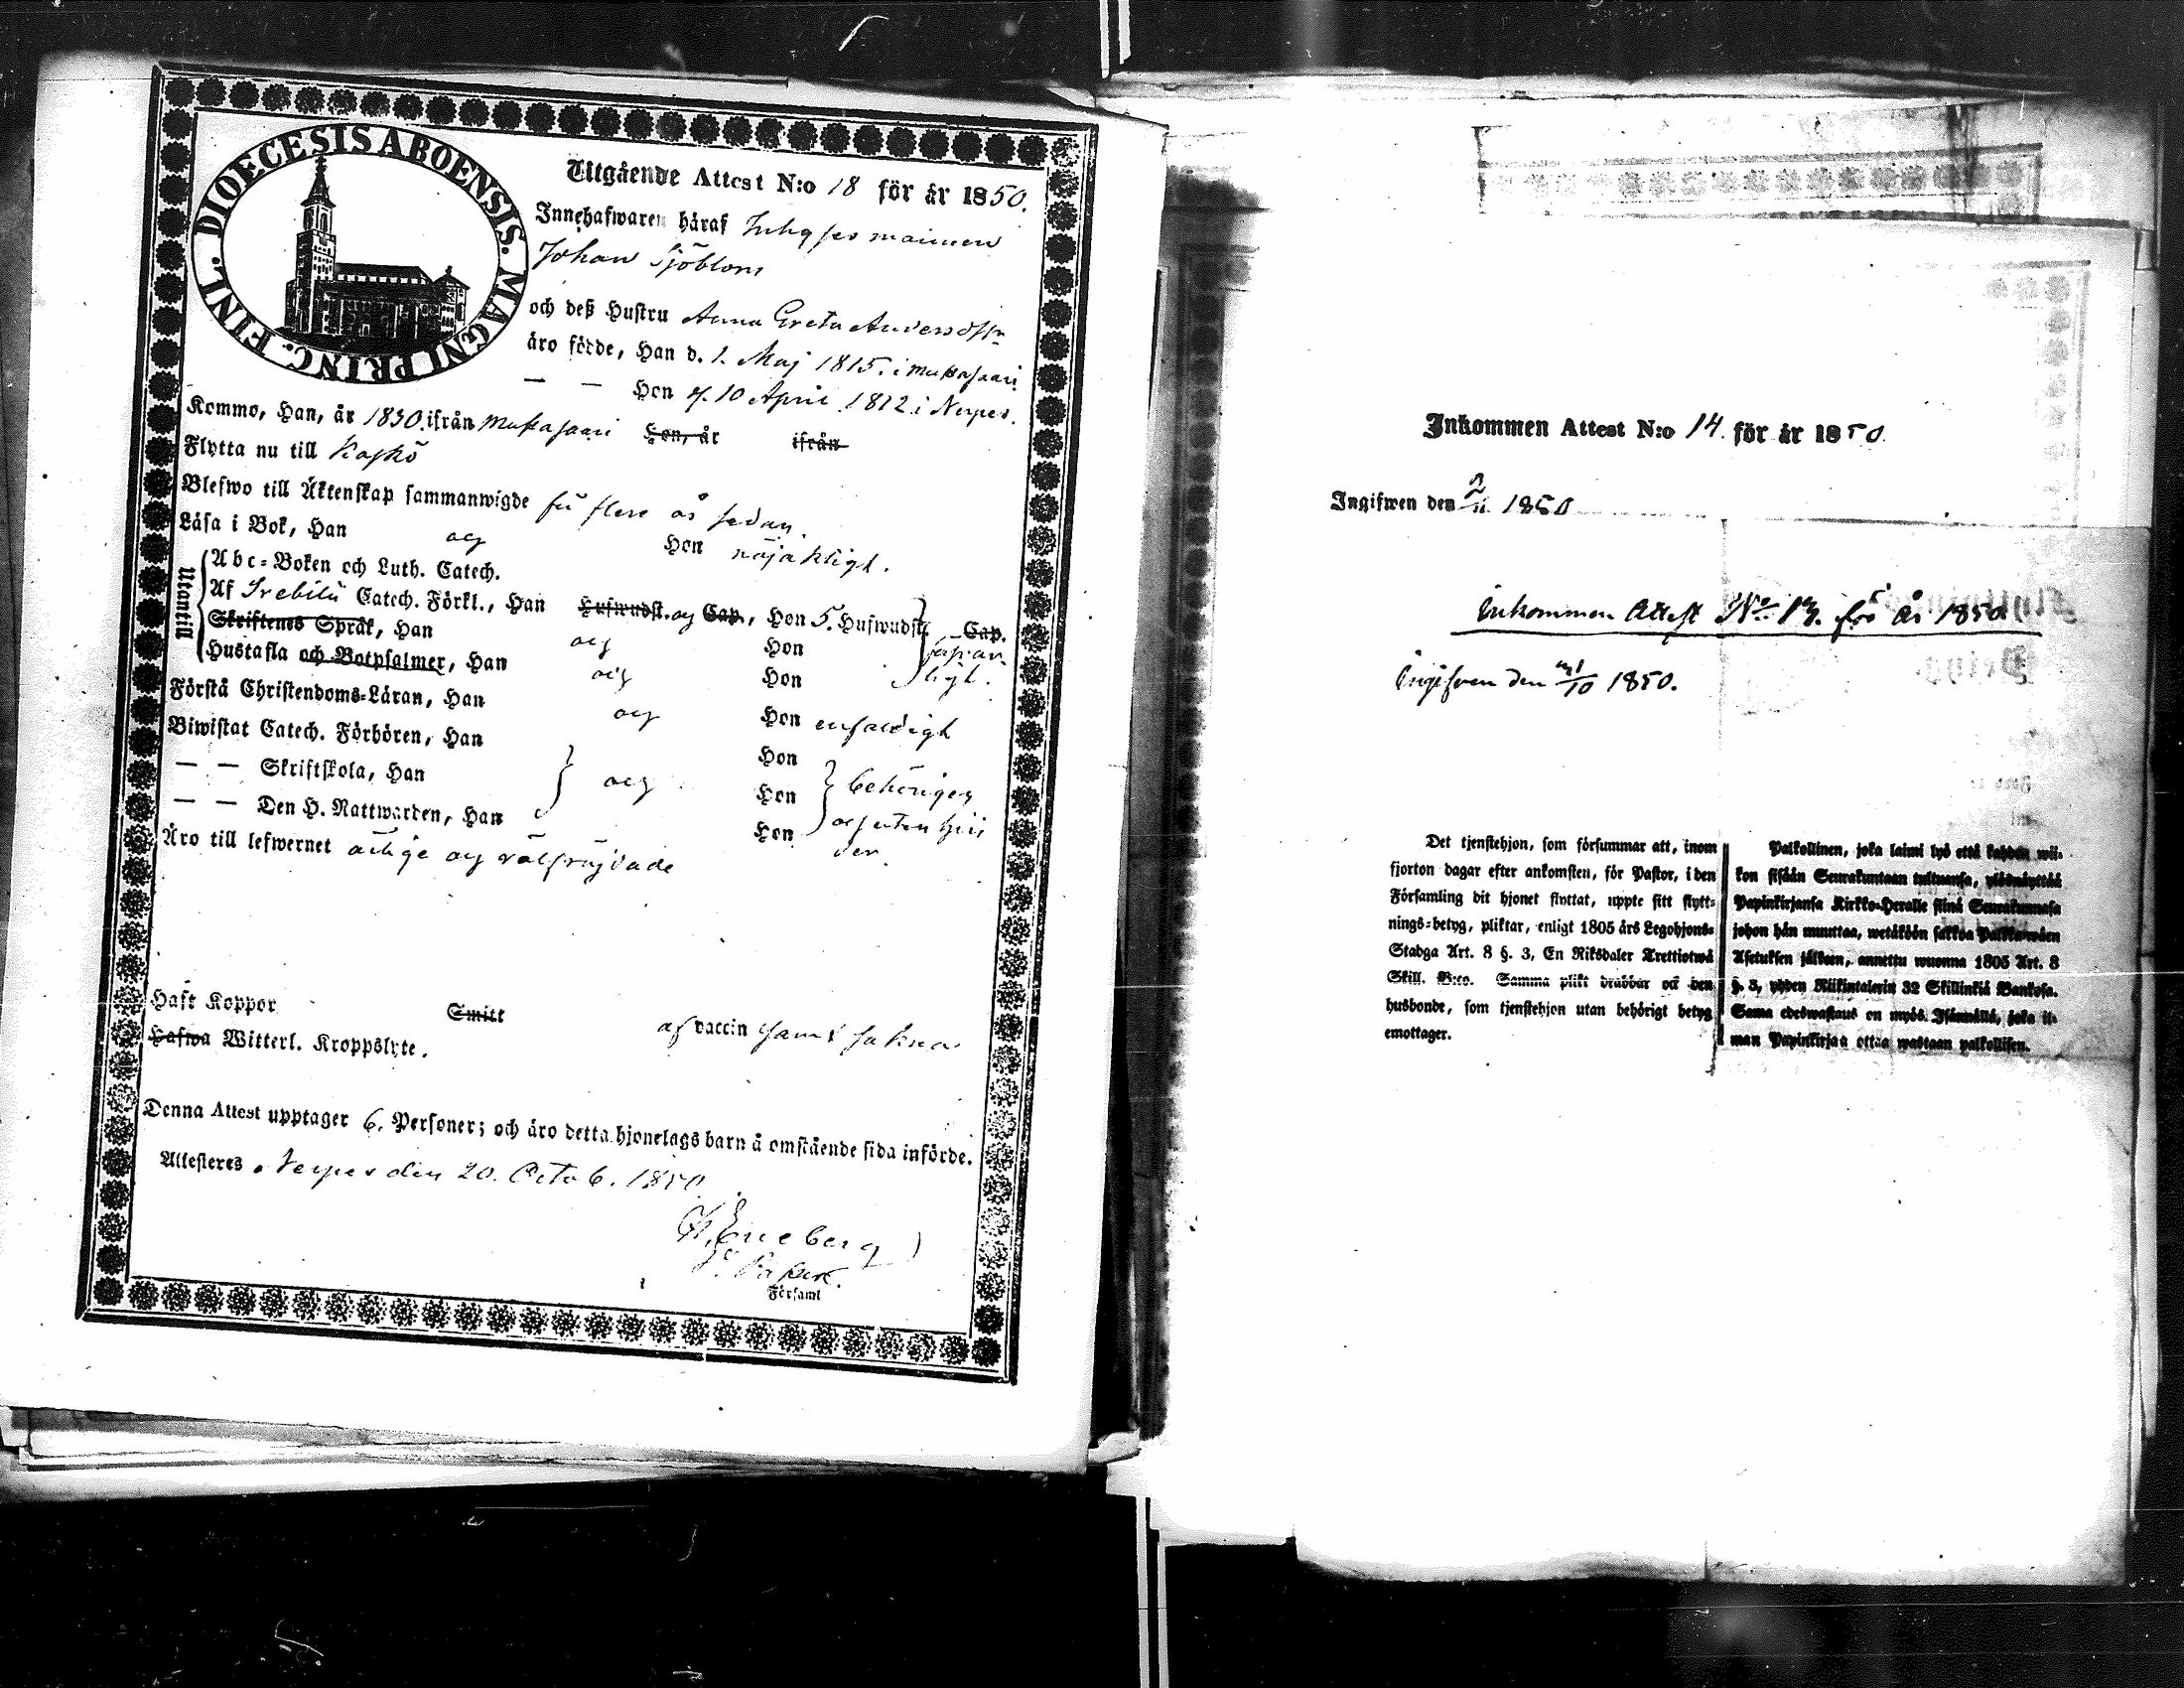 DIOECESIS ABOENSIS. MAGNI PRINC. FINL.
Utgående Attest N:o 18 för år 1850.
Innehafwaren häraf Inhyses mannen
Johan Sjöblom
och deß Hustru Anna Greta Andersdr
äro födde, Han d. 1. Maj 1815. i
— — Hon d. 10 April 1812 i Nerpes.
Kommo, Han, år 1830. ifrån Hon, år ifrån
Flytta nu till Kaskö
Blefwo till Äktenskap sammanwigde för flere år sedan
Läsa i Bok, Han och Hon nöjaktigt.
Utantill
Abc-Boken och Luth. Catech.
Af Svebilii Catech. Förkl., Han Hufwudst. och Cap., Hon 5. Hufwudst. Cap.
Skriftenes Språk, Han och Hon
Hustafla och Botpsalmer, Han och Hon
Förstå Christendoms-Läran, Han och Hon enfaldigt
Biwistat Catech. Förhören, Han Hon
— — Skriftskola, Han och Hon behörigen
— — Den H. Nattwarden, Han Hon och utan hin
der.
Äro till lefwernet ärlige och välfrejdade
Haft Koppor Smitt af vaccin samt sakna
Hafwa Witterl. Kroppslyte.
Denna Attest upptager 6. Personer; och äro detta hjonelags barn å omstående sida införde.
Attesteres, Nerpes den 20. Octob. 1850
Eneberg
Församl
Inkommen Attest N:o 14. för år 1850.
Ingifwen den 1850
Inkommen Attest No 13. för år 1850
Ingifven den 1850.
Det tjenstehjon, som försummar att, inom
fjorton dagar efter ankomsten, för Pastor, i den
Församling dit hjonet flyttat, uppte sitt flytt-
nings-betyg, pliktar, enligt 1805 års Legohjons-
Stadga Art. 8 §. 3, En Riksdaler Trettiotwå
Skill. B:co. Samma plikt drabbar ock den
husbonde, som tjenstehjon utan behörigt betyg
emottager.
Palkollinen, joka laimi lyö että kahden wii-
kon sisään Seurakuntaan tultuansa, ylösnäyttää
Papinkirjansa Kirkko-Herralle siinä Seurakunnasa
johon hän muuttaa, wetäköön sakkoa Palkkawäen
Asetuksen jälkeen, annettu wuonna 1805 Art. 8
§. 3, yhden Riikintalerin 32 Skillinkiä Bankosa.
Sama edeswastaus on myös Isännällä, joka il-
man Papinkirjaa ottaa wastaan palkollisen.